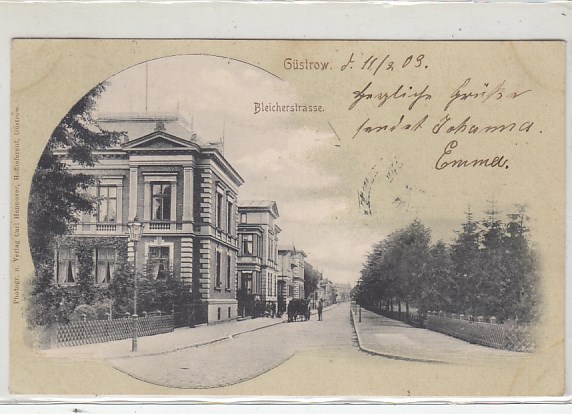 Güstrow. d. 11/3 03.
Bleicherstrasse.
Herzliche Grüße
sendet Johanna.
Emma.
Photogr. u. Verlag Carl Hannover, Hoflieferant, Güstrow.